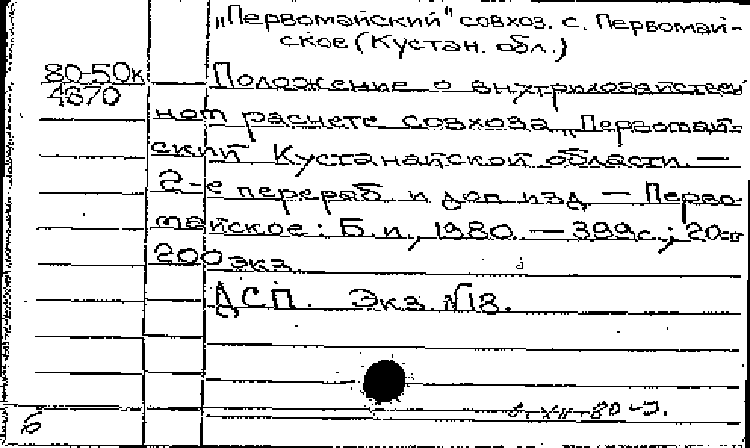 „Первомайский" совхоз. с. Первомай-
ское (Кустан. обл.)
80-50к
4670
Положение о внутрихозяйствен
ном расчете совхоза „Первомай-
ский Кустанайской области. —
2-е перераб. и доп изд — Перво
майское: Б.и., 1980. — 399с.; 20см
200 экз.
ДСП. Экз. №18.
-XII-80-
6